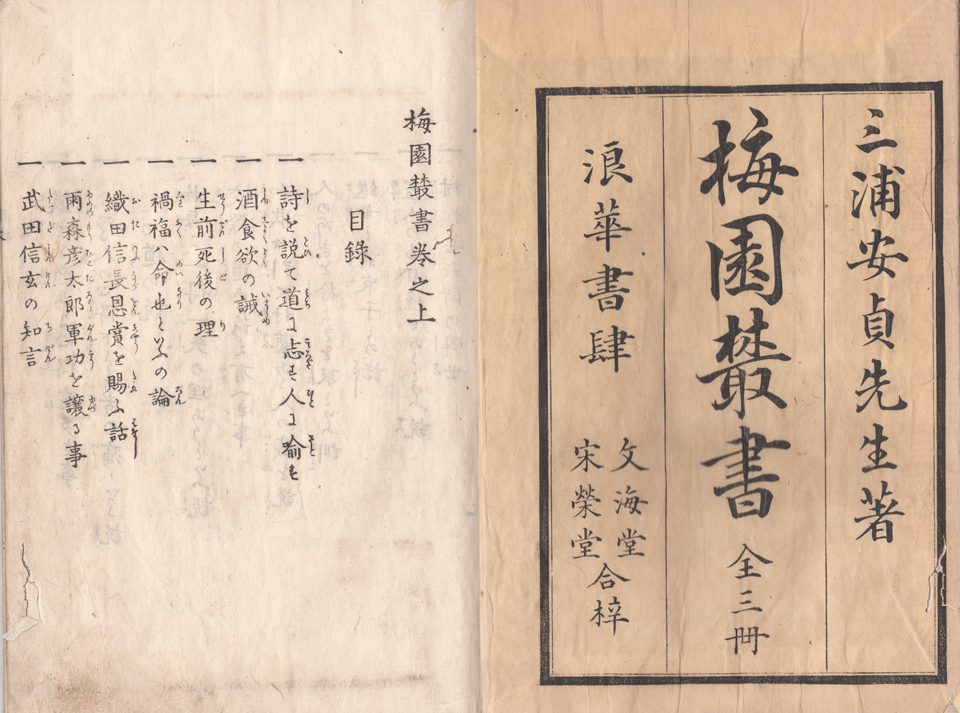 三浦安貞先生著
梅園叢書 全三冊
浪華書肆
文海堂
宋榮堂
合梓
梅園叢書巻之上
目録
一 詩を説て道に志す人に喩す
一 酒食欲の誡
一 生前死後の理
一 禍福ハ命也といふの論
一 織田信長恩賞を賜ふ話
一 雨森彦太郎軍功を譲る事
一 武田信玄の知言